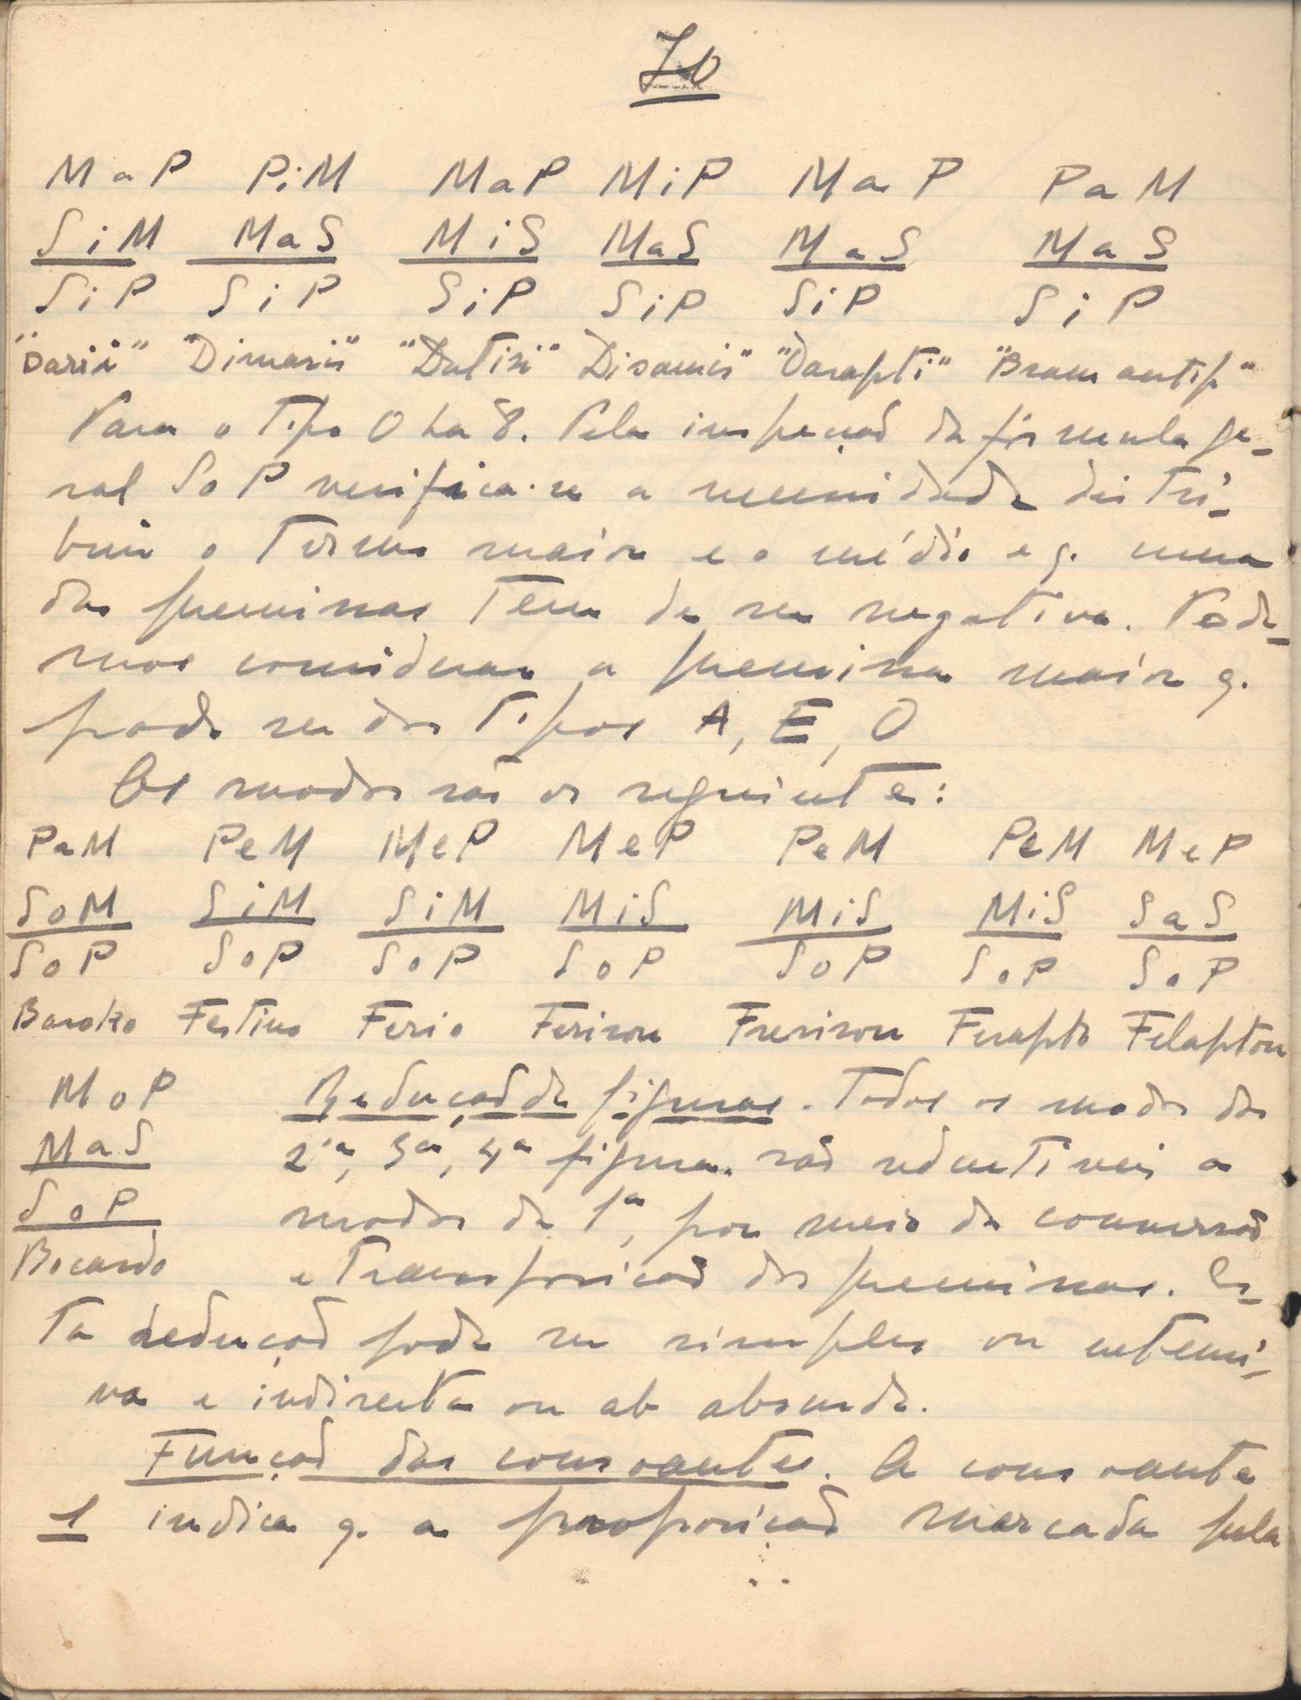 70
MaP PiM MaP MiP MaP PaM
SiM MaS MiS MaS MaS MaS
SiP SiP SiP SiP SiP SiP
"Darii" "Dimaris" "Datisi" Disamis" "Darapti" "Bramantip"
Para o tipo O ha 8. Pela inspecção da fórmula ge-
ral SoP verifica-se a necessidade distri-
buir o termo maior e o médio e q. uma
das premissas tem de ser negativa. Pode-
mos considerar a premissa maior q.
pode ser dos tipos A, E, O
Os modos são os seguintes:
PaM PeM MeP MeP PeM PeM MeP
SoM SiM SiM MiS MiS MiS SaS
SoP SoP SoP SoP SoP SoP SoP
Baroko Festino Ferio Ferison Fresison Fesapto Felapton
MoP Redução de figuras. Todos os modos da
MaS 2ª, 3ª, 4ª figura. são reductiveis a
SoP modos da 1ª, por meio da conversão
Bocardo e transposição das premissas. Es-
ta redução pode ser simples ou ostensi-
va e indirecta ou ab absurdo.
Função das consoantes. A consoante
s indica q. a proposição marcada pela